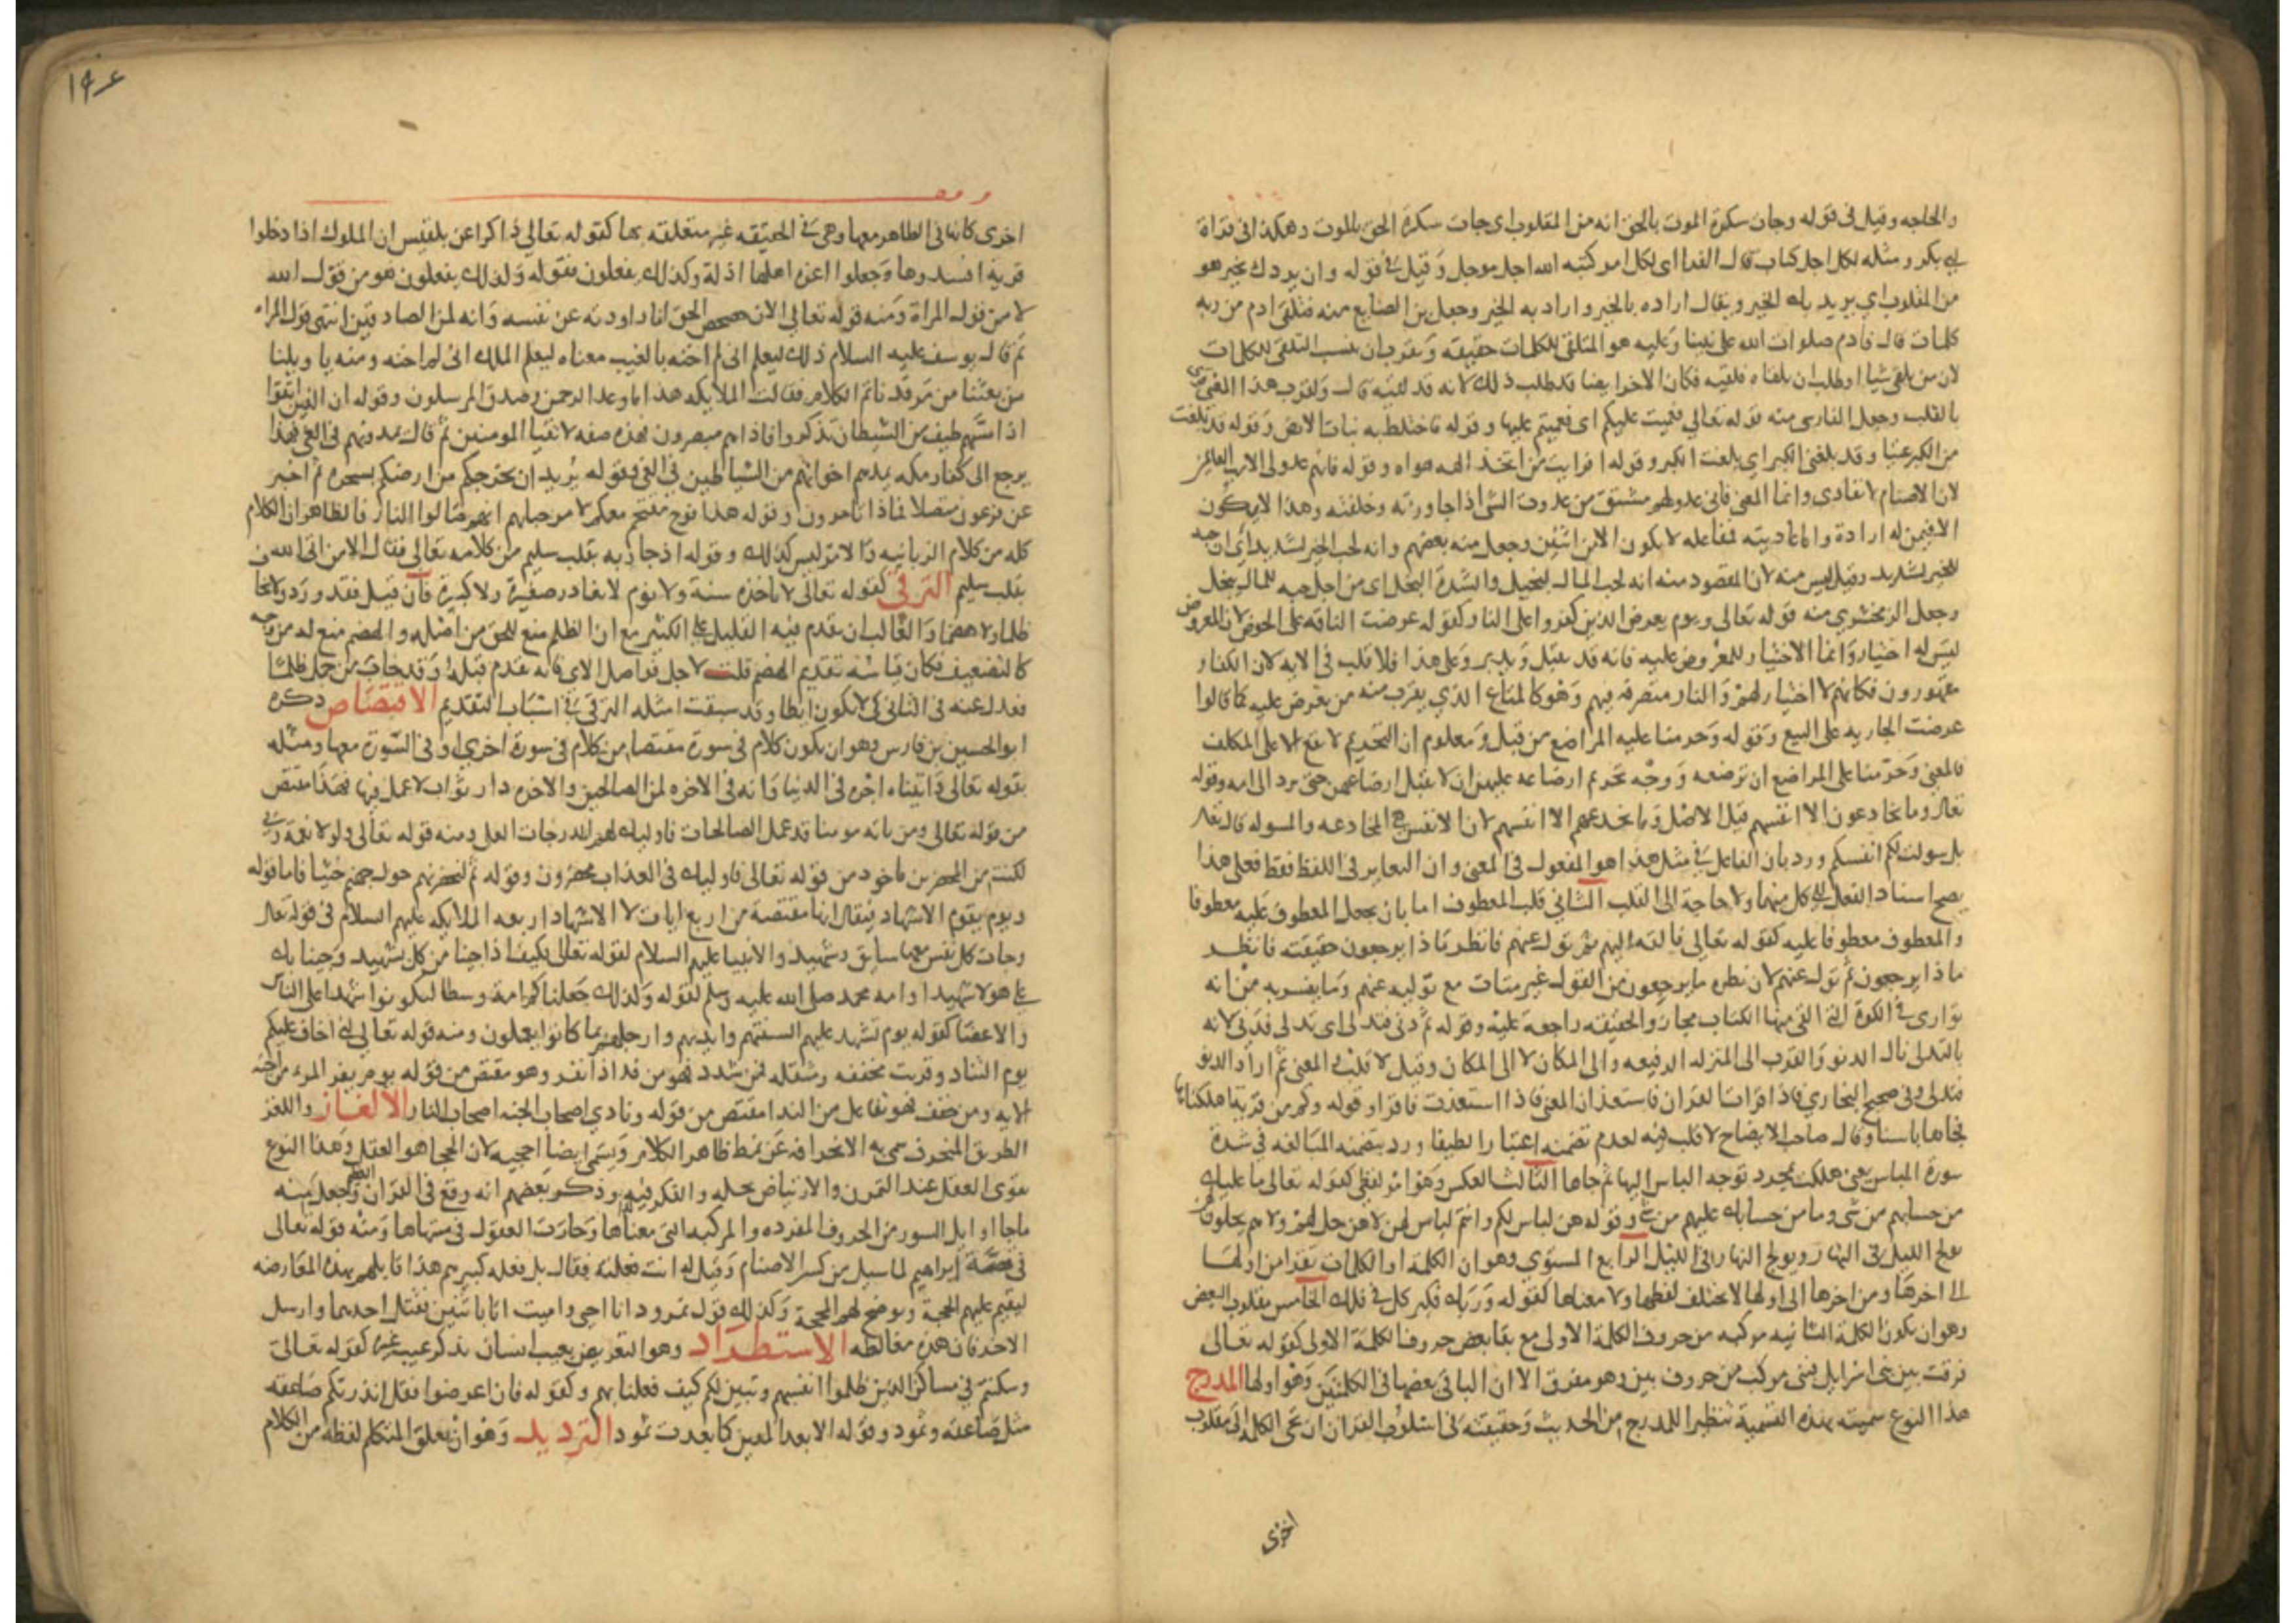 والحاجه وقيل في قوله وجات سكرة الموت بالحق انه من المقلوب اي جات سكرة الحق بالموت وهكذا في قراة
ابي بكر ومثله لكل اجل كتاب قال الفرا اي لكل امر كتبه الله اجل موجل وقيل في قوله وان يردك بخير هو
من المقلوب اي يريد بك الخير ويقال اراده بالخير واراد به الخير وجعل بن الصايع منه فتلقى ادم من ربه
كلمات قال فادم صلوات الله على نبينا وعليه هو المتلقي للكلمات حقيقة ويقرب ان ينسب التلقي للكلمات
لان من تلقى شيا او طلب ان يلقاه فلقيه فكان الاخر ايضا قد طلب ذلك لانه قد لقيه قال ولقرب هذا المعنى
بالقلب وجعل الفارسي منه قوله تعالى فعميت عليكم اي فعميتم عليها وقوله فاختلط به نبات الارض وقوله قد بلغت
من الكبر عتيا وقد بلغني الكبر اي بلغت الكبر وقوله افرايت من اتخذ الهه هواه وقوله فانهم عدو لي الا رب العالمين
لان الاصنام لا تعادي وانما المعنى فاني عدو لهم مشتق من عدوت الشي اذا جاوزته وخلفته وهذا لا يكون
الا فيمن له ارادة واما عاديته فمفاعله لا يكون الا من اثنين وجعل منه بعضهم وانه لحب الخير لشديد اي ان حبه
للخير لشديد وقيل ليس منه لان المقصود منه انه لحب المال لبخيل والشدة البخل اي من اجل حبه للمال يبخل
وجعل الزمخشري منه قوله تعالى ويوم يعرض الذين كفروا على النار كقوله عرضت الناقه على الحوض لان المعروض
ليس له اختيار وانما الاختيار للمعروض عليه فانه قد يقبل ويريد وعلى هذا فلا قلب في الايه لان الكفار
مقهورون فكانهم لا اختيار لهم والنار متصرفه فيهم وهو كالمتاع الذي يقرب منه من يعرض عليه كما قالوا
عرضت الجاريه على البيع وقوله وحرمنا عليه المراضع من قبل ومعلوم ان التحريم لا يقع الا على المكلف
فالمعنى وحرمنا على المراضع ان ترضعه ووجه تحريم ارضاعه عليهن ان لا يقبل ارضاعهن حتى يرد الى امه وقوله
تعالى وما يخادعون الا انفسهم قيل الاصل وما يخدعهم الا انفسهم لان الانفس هي المخادعه والمسوله قال تعالى
بل سولت لكم انفسكم ورد بان الفاعل في مثل هذا هو المفعول في المعنى وان التغاير في اللفظ فقط فعلى هذا
يصح اسناد الفعل الى كل منهما ولا حاجة الى القلب الثاني قلب المعطوف اما بان يجعل المعطوف عليه معطوفا
والمعطوف معطوفا عليه كقوله تعالى فالقه اليهم ثم تول عنهم فانظر ماذا يرجعون حقيقته فانظر
ماذا يرجعون ثم تول عنهم لان نظره ما يرجعون من القول غير متات مع توليه عنهم وما يفسر به من انه
توارى في الكوة التي القى منها الكتاب مجاز والحقيقه راجعة عليه وقوله ثم دنى فتدلى اي تدلى فدنى لانه
بالتدلي نال الدنو والقرب الى المنزلة الرفيعه والى المكانه لا الى المكان وقيل لا قلب والمعنى ثم اراد الدنو
فتدلى وفي صحيح البخاري فاذا قرات القران فاستعذ ان المعنى فاذا استعذت فاقرا وقوله وكم من قرية اهلكناها
فجاها باسنا وقال صاحب الايضاح لا قلب فيه لعدم تضمنه اعتبارا لطيفا ورد بتضمنه المبالغه في شدة
سورة الباس يعني هلكت بمجرد توجه الباس اليها ثم جاها الثالث العكس وهو امر لفظي كقوله تعالى ما عليك
من حسابهم من شي وما من حسابك عليهم من شي وقوله هن لباس لكم وانتم لباس لهن لا هن حل لهم ولا هم يحلون
يولج الليل في النهار ويولج النهار في الليل الرابع المستوي وهو ان الكلمة او الكلمات تقرا من اولها
الى اخرها ومن اخرها الى اولها لا يختلف لفظها ولا معناها كقوله وربك فكبر كل في فلك الخامس مقلوب البعض
وهو ان تكون الكلمة الثانيه مركبه من حروف الكلمة الاولى مع بقا بعض حروف الكلمة الاولى كقوله تعالى
فرقت بين بني اسرايل فبني مركب من حروف بين وهو مفرق الا ان الباقي بعضها في الكلمتين وهو اولها المدرج
هذا النوع سميته بهذه التسمية تنظيرا للمدرج من الحديث وحقيقته في اسلوب القران ان تجي الكلمة الى جنب
اخرى
١٩٤
اخرى كانها في الظاهر معها وهي في الحقيقه غير متعلقه بها كقوله تعالى ذاكرا عن بلقيس ان الملوك اذا دخلوا
قرية افسدوها وجعلوا اعزة اهلها اذلة وكذلك يفعلون فقوله وكذلك يفعلون هو من قول الله
لا من قول المراة ومنه قوله تعالى الان حصحص الحق انا راودته عن نفسه وانه لمن الصادقين انتهى قول المراه
ثم قال يوسف عليه السلام ذلك ليعلم اني لم اخنه بالغيب معناه ليعلم الملك اني لم اخنه ومنه يا ويلنا
من بعثنا من مرقدنا تم الكلام فقالت الملايكه هذا ما وعد الرحمن وصدق المرسلون وقوله ان الذين اتقوا
اذا مسهم طيف من الشيطان تذكروا فاذا هم مبصرون فهذه صفه لاتقيا المومنين ثم قال يمدونهم في الغي فهذا
يرجع الى كفار مكه يمدهم اخوانهم من الشياطين في الغي وقوله يريد ان يخرجكم من ارضكم بسحره ثم اخبر
عن فرعون متصلا فماذا تامرون وقوله هذا فوج مقتحم معكم لا مرحبا بهم انهم صالوا النار فالظاهر ان الكلام
كله من كلام الزبانيه والامر ليس كذلك وقوله اذ جا ربه بقلب سليم من كلامه تعالى فقال الا من اتى الله
بقلب سليم الترقي كقوله تعالى لا تاخذه سنة ولا نوم لا يغادر صغيرة ولا كبيرة فان قيل فقد ورد ولا يخاف
ظلما ولا هضما والغالب ان يقدم فيه القليل على الكثير مع ان الظلم منع للحق من اصله والهضم منع له من وجه
كالتضعيف فكان قياسه تقديم الهضم قلت لاجل فواصل الاي فانه تقدم قبله وقد خاب من حمل ظلما
فعدل عنه في الثاني كي لا يكون ايطا وقد سبقت امثله الترقي في اسباب التقديم الاقتصاص ذكره
ابو الحسين بن فارس وهو ان يكون كلام في سورة مقتصا من كلام في سورة اخرى او في السورة معها ومثله
بقوله تعالى واتيناه اجره في الدنيا وانه في الاخره لمن الصالحين والاخره دار ثواب لا عمل فيها فهذا مقتص
من قوله تعالى ومن ياته مومنا قد عمل الصالحات فاوليك لهم الدرجات العلى ومنه قوله تعالى ولولا نعمة ربي
لكنت من المحضرين ماخوذ من قوله تعالى فاوليك في العذاب محضرون وقوله ثم لنحضرنهم حول جهنم جثيا فاما قوله
ويوم يقوم الاشهاد فيقال انها مقتصة من اربع ايات لان الاشهاد اربعه الملايكه عليهم السلام في قوله تعالى
وجات كل نفس معها سايق وشهيد والانبيا عليهم السلام لقوله تعالى فكيف اذا جينا من كل شهيد وجينا بك
على هولا شهيدا وامه محمد صلى الله عليه وسلم لقوله وكذلك جعلناكم امة وسطا لتكونوا شهدا على الناس
والاعضا كقوله يوم تشهد عليهم السنتهم وايديهم وارجلهم بما كانوا يعملون ومنه قوله تعالى اني اخاف عليكم
يوم التناد وقريت مخففه ومثقله فمن شدد فهو من ند اذا نفر وهو مقتص من قوله يوم يفر المرء من اخيه
الايه ومن خفف فهو تفاعل من الندا مقتص من قوله ونادي اصحاب الجنه اصحاب النار الالغاز واللغز
الطريق المنحرف سمي به الانحرافه عن نمط ظاهر الكلام ويسمى ايضا احجيه لان الحجا هو العقل وهذا النوع
يقوى العقل عند التمرن والارتياض بحله والفكر فيه وذكر بعضهم انه وقع في القران العظيم وجعل منه
ماجا اوايل السور من الحروف المفرده والمركبه التي معناها وحارت العقول في منتهاها ومنه قوله تعالى
في قصة ابراهيم لما سيل من كسر الاصنام وقيل له انت فعلته فقال بل فعله كبيرهم هذا قابلهم بهذه المعارضه
ليقيم عليهم الحجة ويوضح لهم المحجة وكذلك قول نمرود انا احيي واميت اتا باثنين فقتل احدهما وارسل
الاخر فان هذه مغالطه الاستطراد وهو التعريض بعيب انسان بذكر عيب غيره كقوله تعالى
وسكنتم في مساكن الذين ظلموا انفسهم وتبين لكم كيف فعلنا بهم وكقوله فان اعرضوا فقل انذرتكم صاعقة
مثل صاعقة وثمود وقوله الا بعدا لمدين كما بعدت ثمود الترديد وهو ان يعلق المتكلم لفظه من الكلام